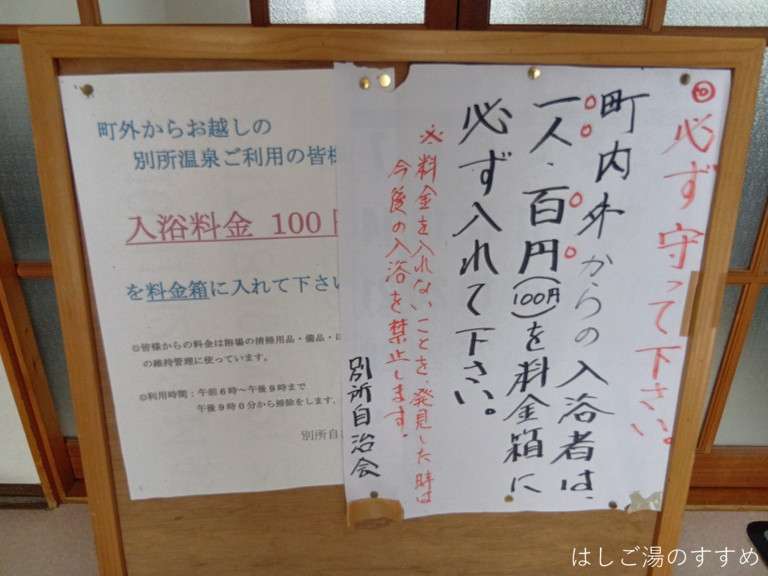 町外からお越しの
別所温泉ご利用の皆様
入浴料金 100円
を料金箱に入れて下さい
◎皆様からの料金は浴場の清掃用品・備品・
の維持管理に使っています。
◎利用時間：午前6時～午後9時まで
午後9時0分から掃除をします。
別所自
◎必ず守って下さい。
町内外からの入浴者は、
一人・百円(100円)を料金箱に
必ず入れて下さい。
※料金を入れないことを、発見した時は
今後の入浴を禁止します。
別所自治会
はしご湯のすすめ